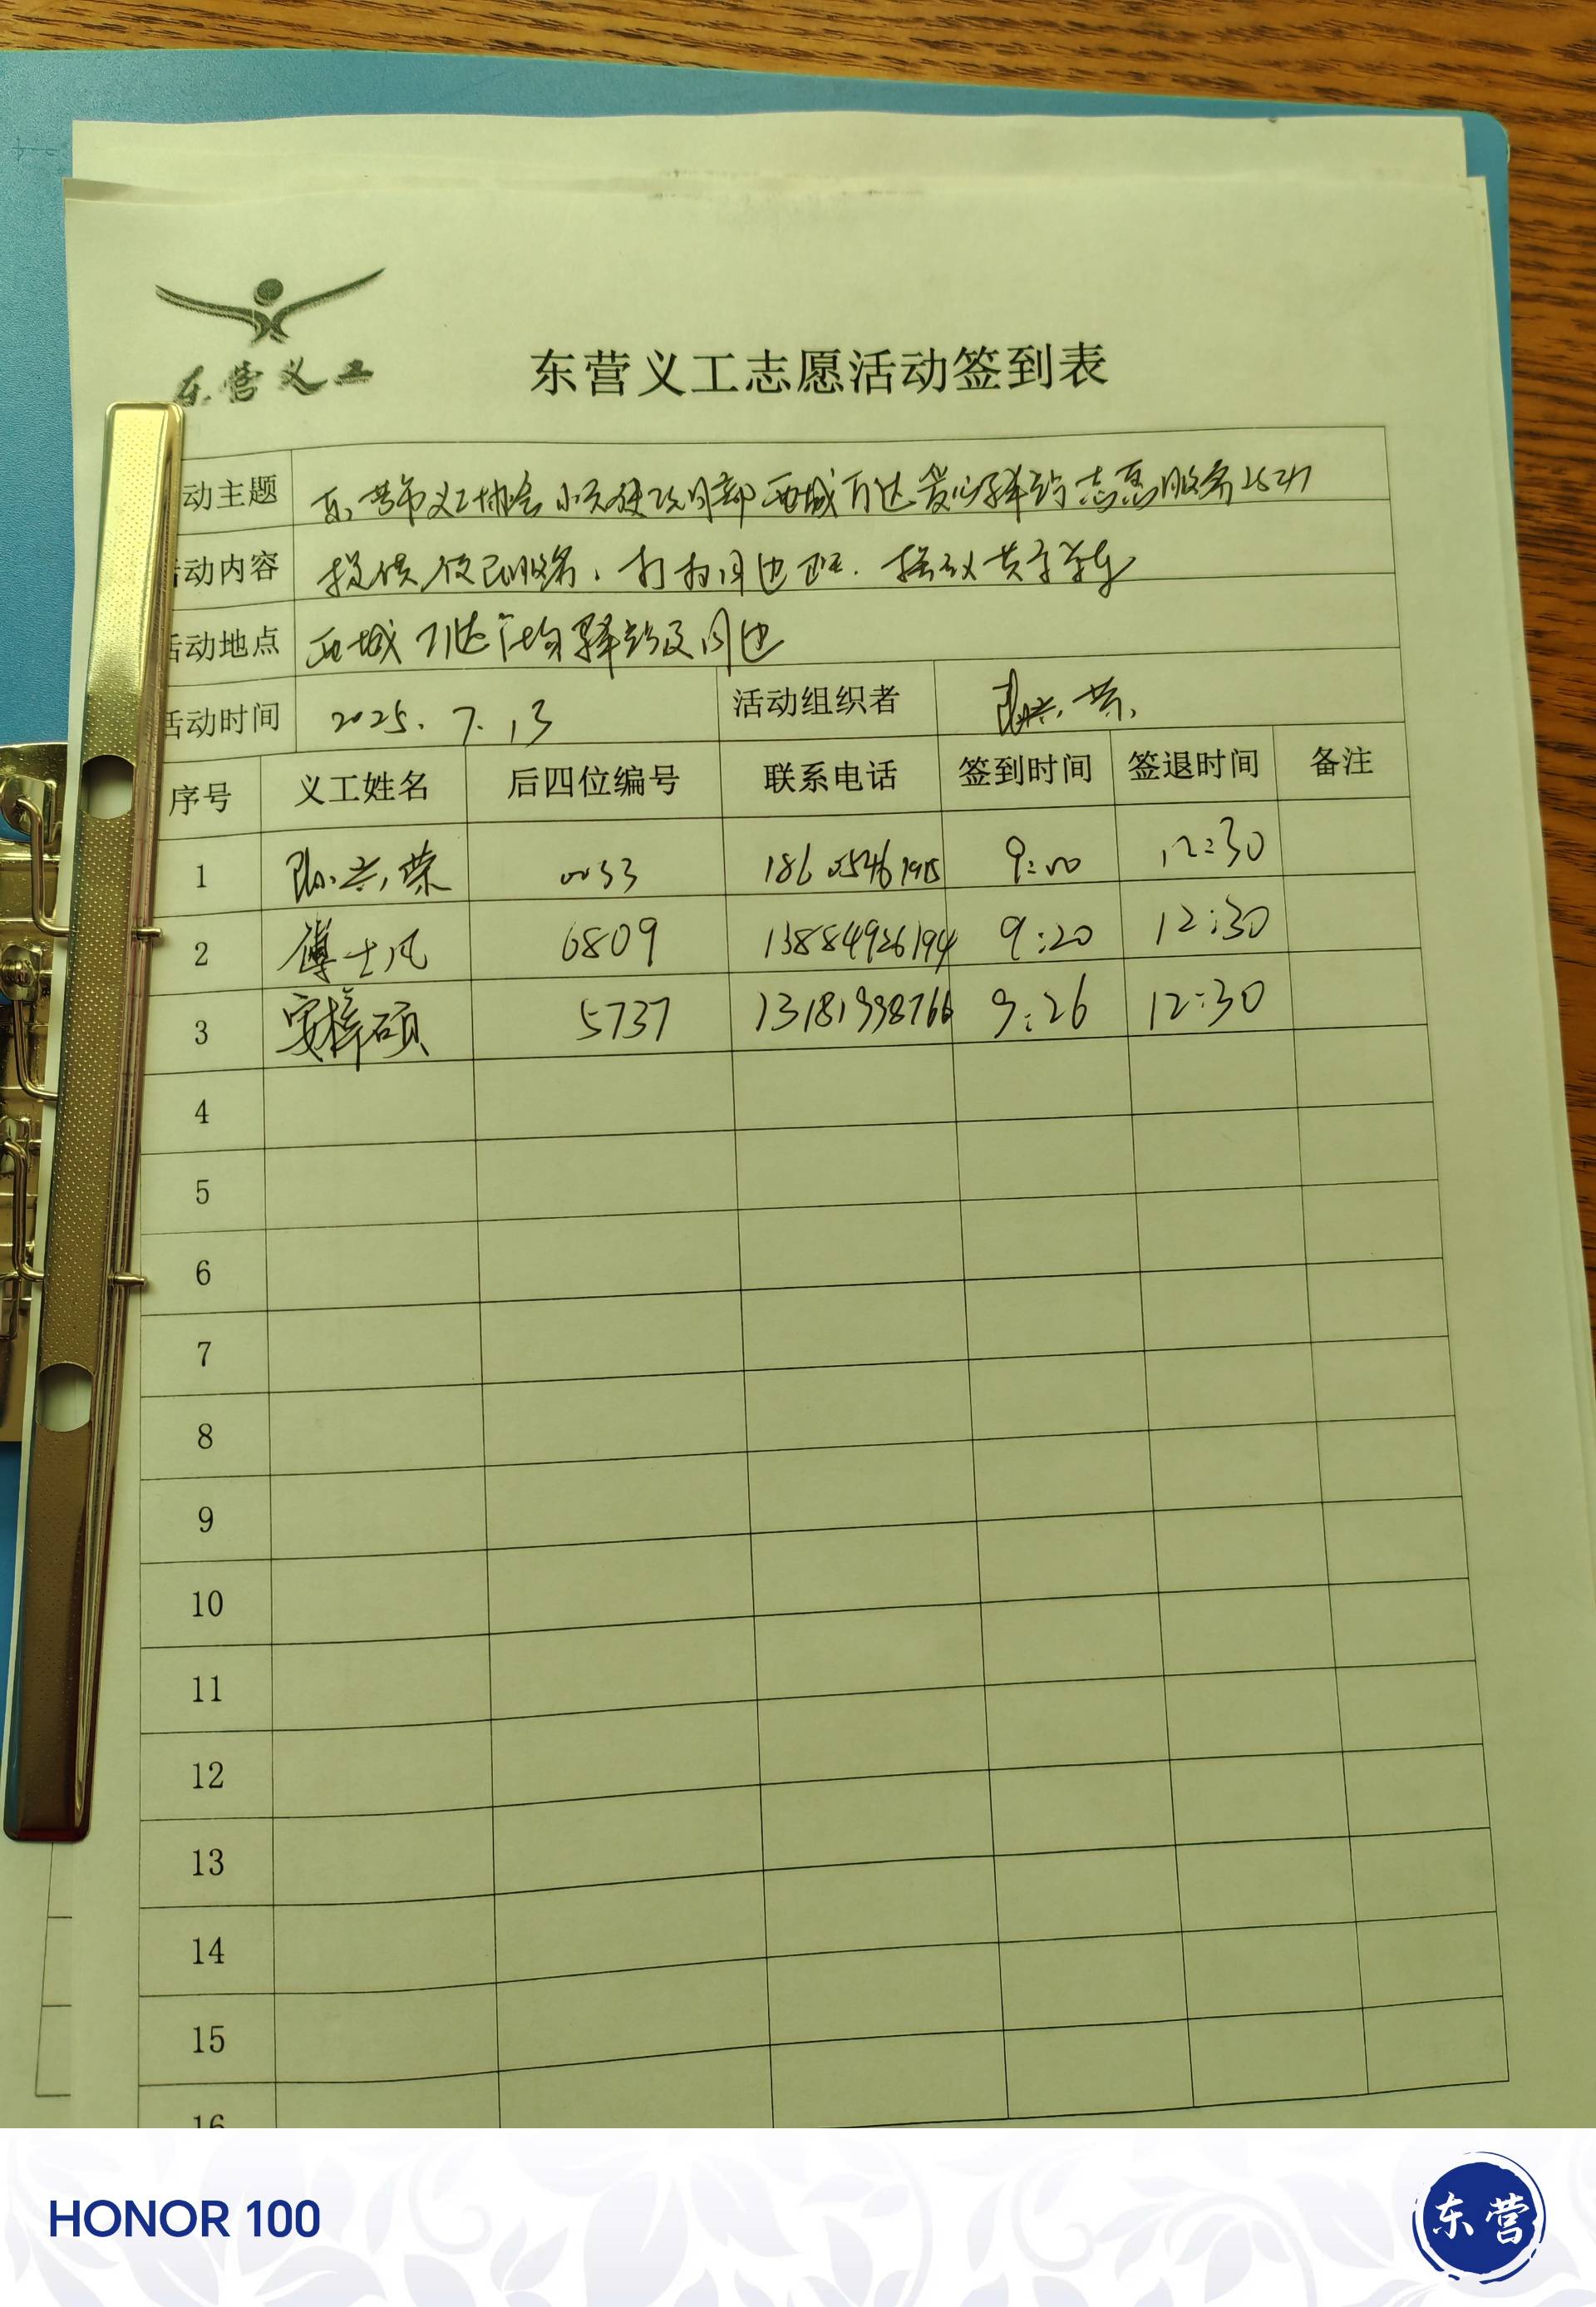 东营义工
东营义工志愿活动签到表
动主题 东营市义工协会 西城万达爱心驿站志愿服务
活动内容 提供便民服务、打扫周边卫生、摆放共享单车
活动地点 西城万达广场驿站及周边
活动时间 2025.7.13 活动组织者 孙兴荣
序号 义工姓名 后四位编号 联系电话 签到时间 签退时间 备注
1 孙兴荣 0033 186 9:00 12:30
2 傅士凡 6809 13884926194 9:20 12:30
3 安梓硕 5737 13181998766 9:26 12:30
4
5
6
7
8
9
10
11
12
13
14
15
16
HONOR 100
东营